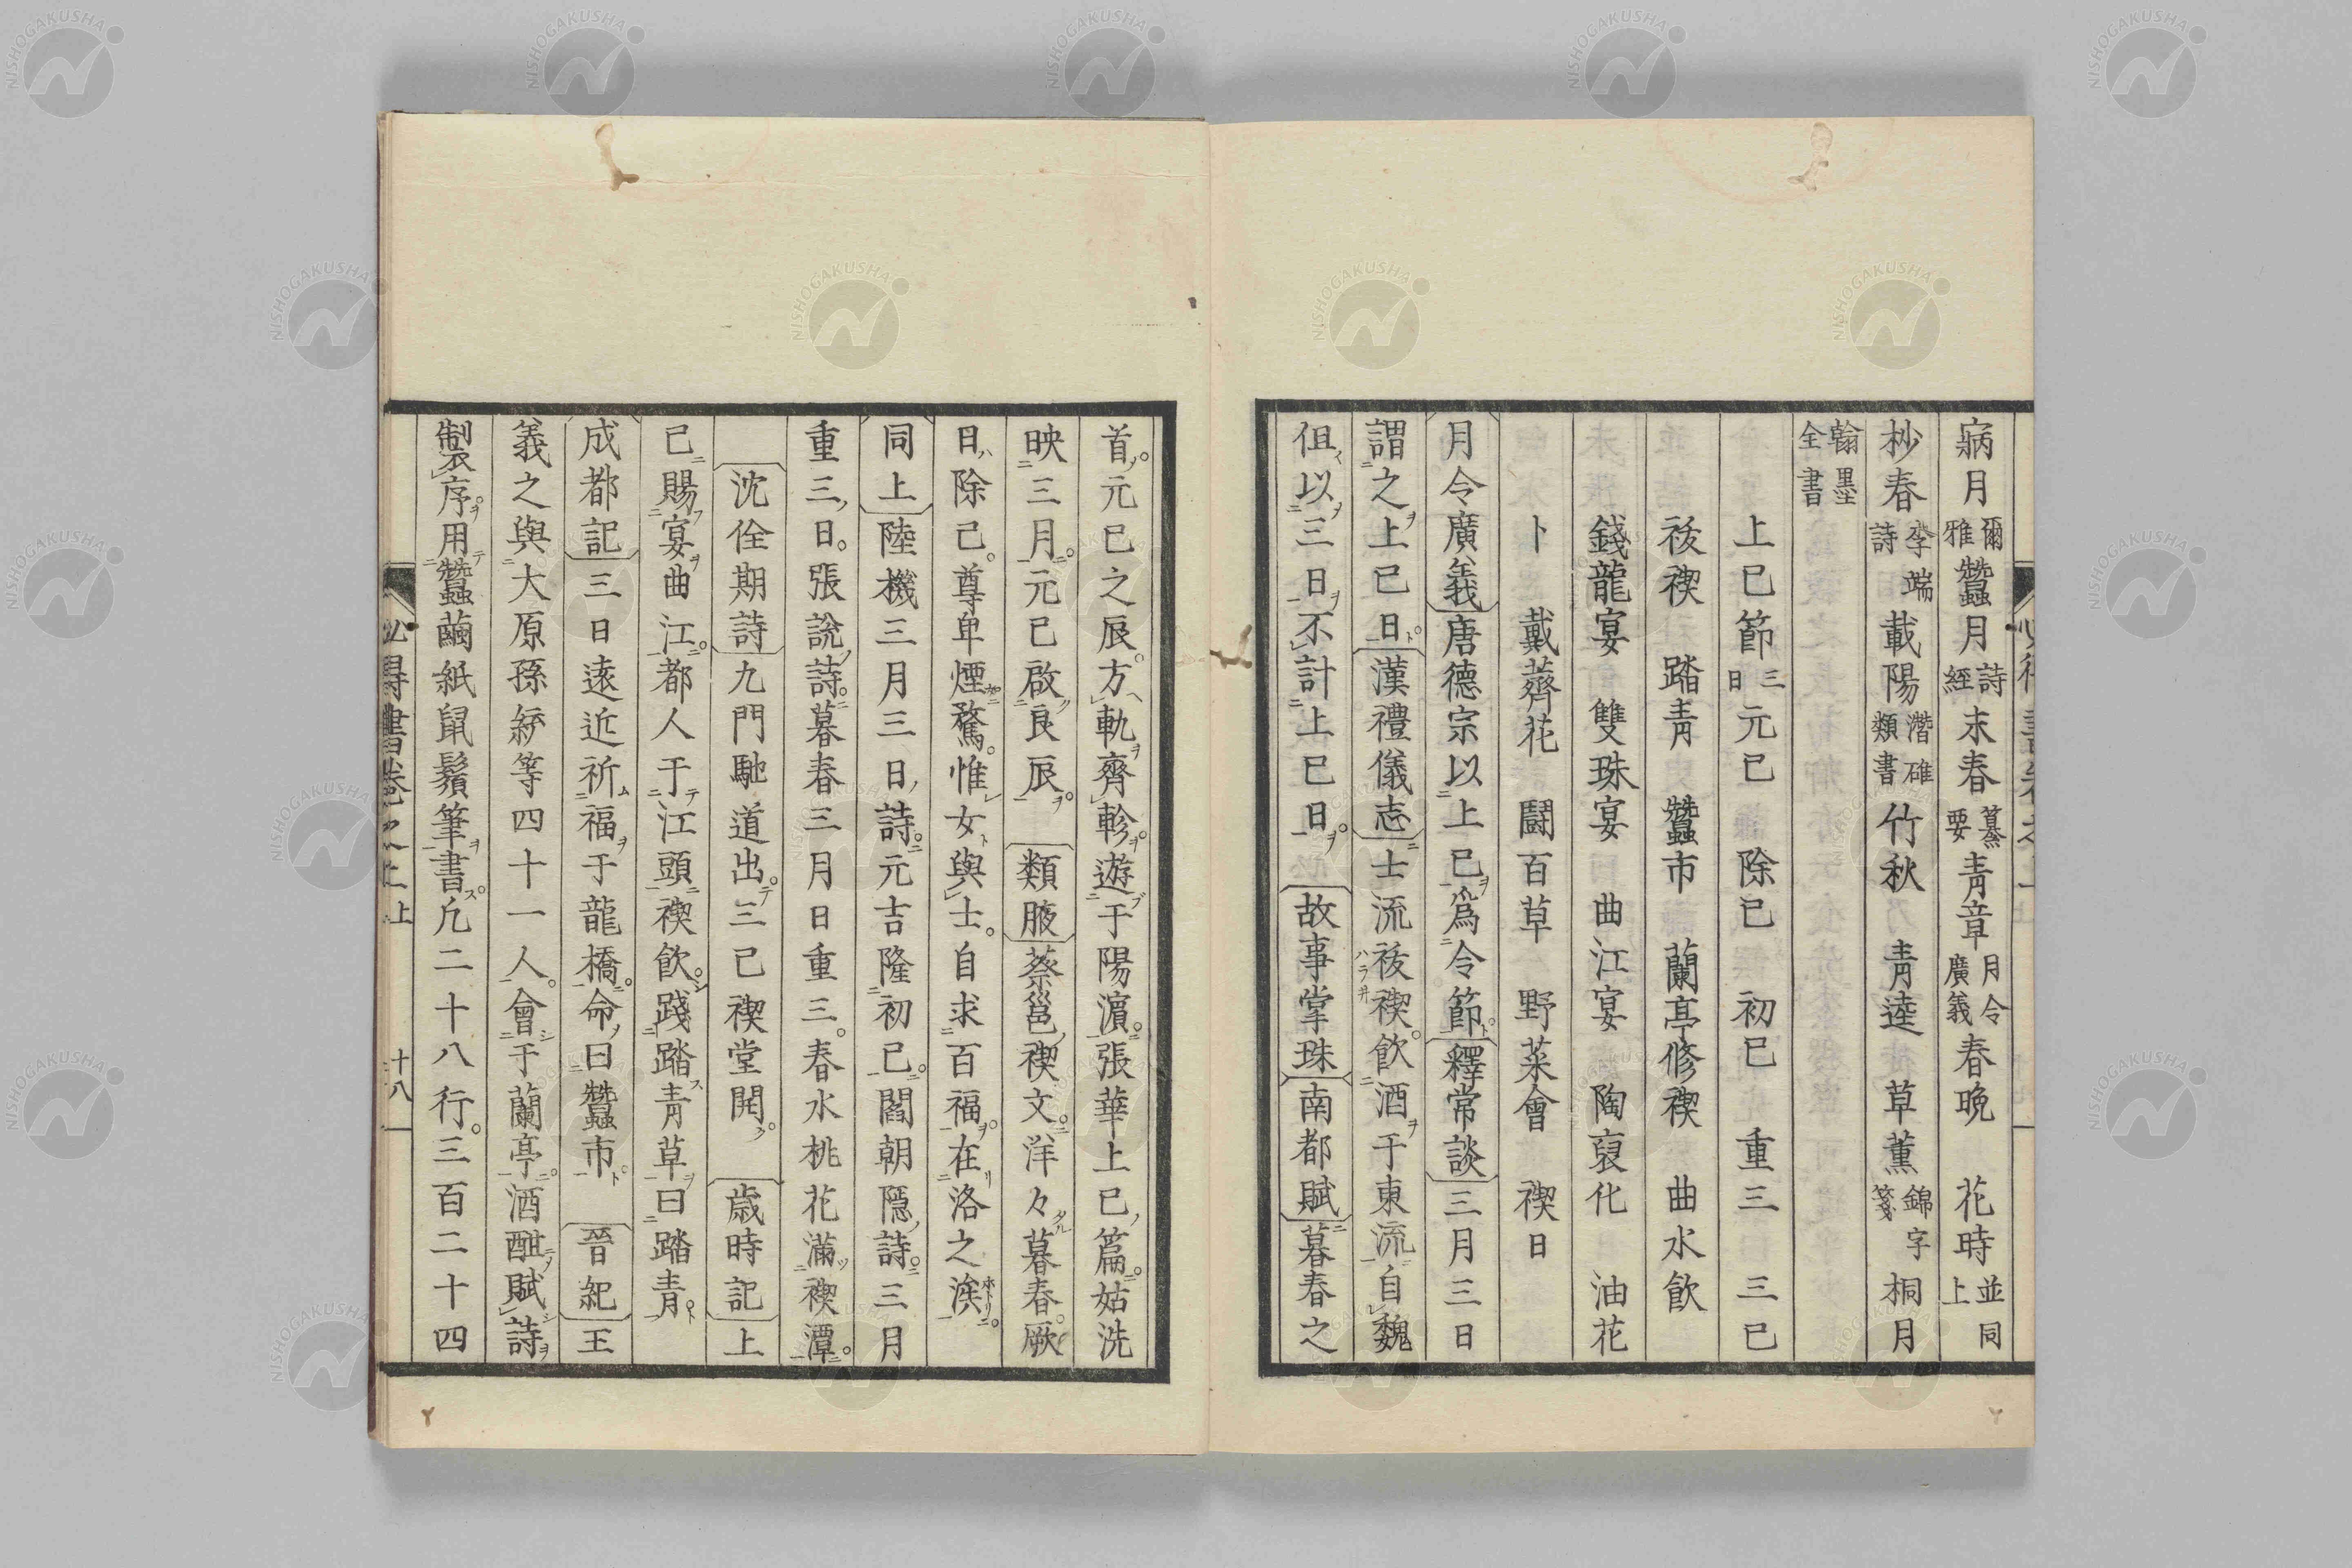 寎月爾雅蠶月詩經末春纂要青章月令廣義春晩　花時並同上
杪春李端詩載陽潛確類書竹秋　青逵　草薰錦字箋桐月
翰墨全書
上巳節三日元巳　除巳　初巳　重三　三巳
祓禊　踏青　蠶市　蘭亭修禊　曲水飲
錢龍宴　雙珠宴　曲江宴　陶裒化　油花
卜　戴薺花　鬪百草　野菜會　禊日
月令廣義唐德宗以上巳爲令節釋常談三月三日
謂之上巳日漢禮儀志士流祓禊飲酒于東流自魏
但以三日不計上巳日故事掌珠南都賦暮春之
首元巳之辰方軌齊軫遊于陽濵張華上巳篇姑洗
映三月元巳啟良辰　類腋蔡邕禊文洋々暮春厥
日除巳尊卑煙騖惟女與士自求百福在洛之涘
同上陸機三月三日詩元吉隆初巳閻朝隱詩三月
重三日張説詩暮春三月日重三春水桃花滿禊潭
沈佺期詩九門馳道出三巳禊堂開　歳時記上
巳賜宴曲江都人于江頭禊飲踐踏青草曰踏青
成都記三日遠近祈福于龍橋命曰蠶市　晉紀王
義之與大原孫綽等四十一人會于蘭亭酒酣賦詩
製序用蠶繭紙鼠鬚筆書凢二十八行三百二十四
必得書卷之上上　十八
NISHOGAKUSHA